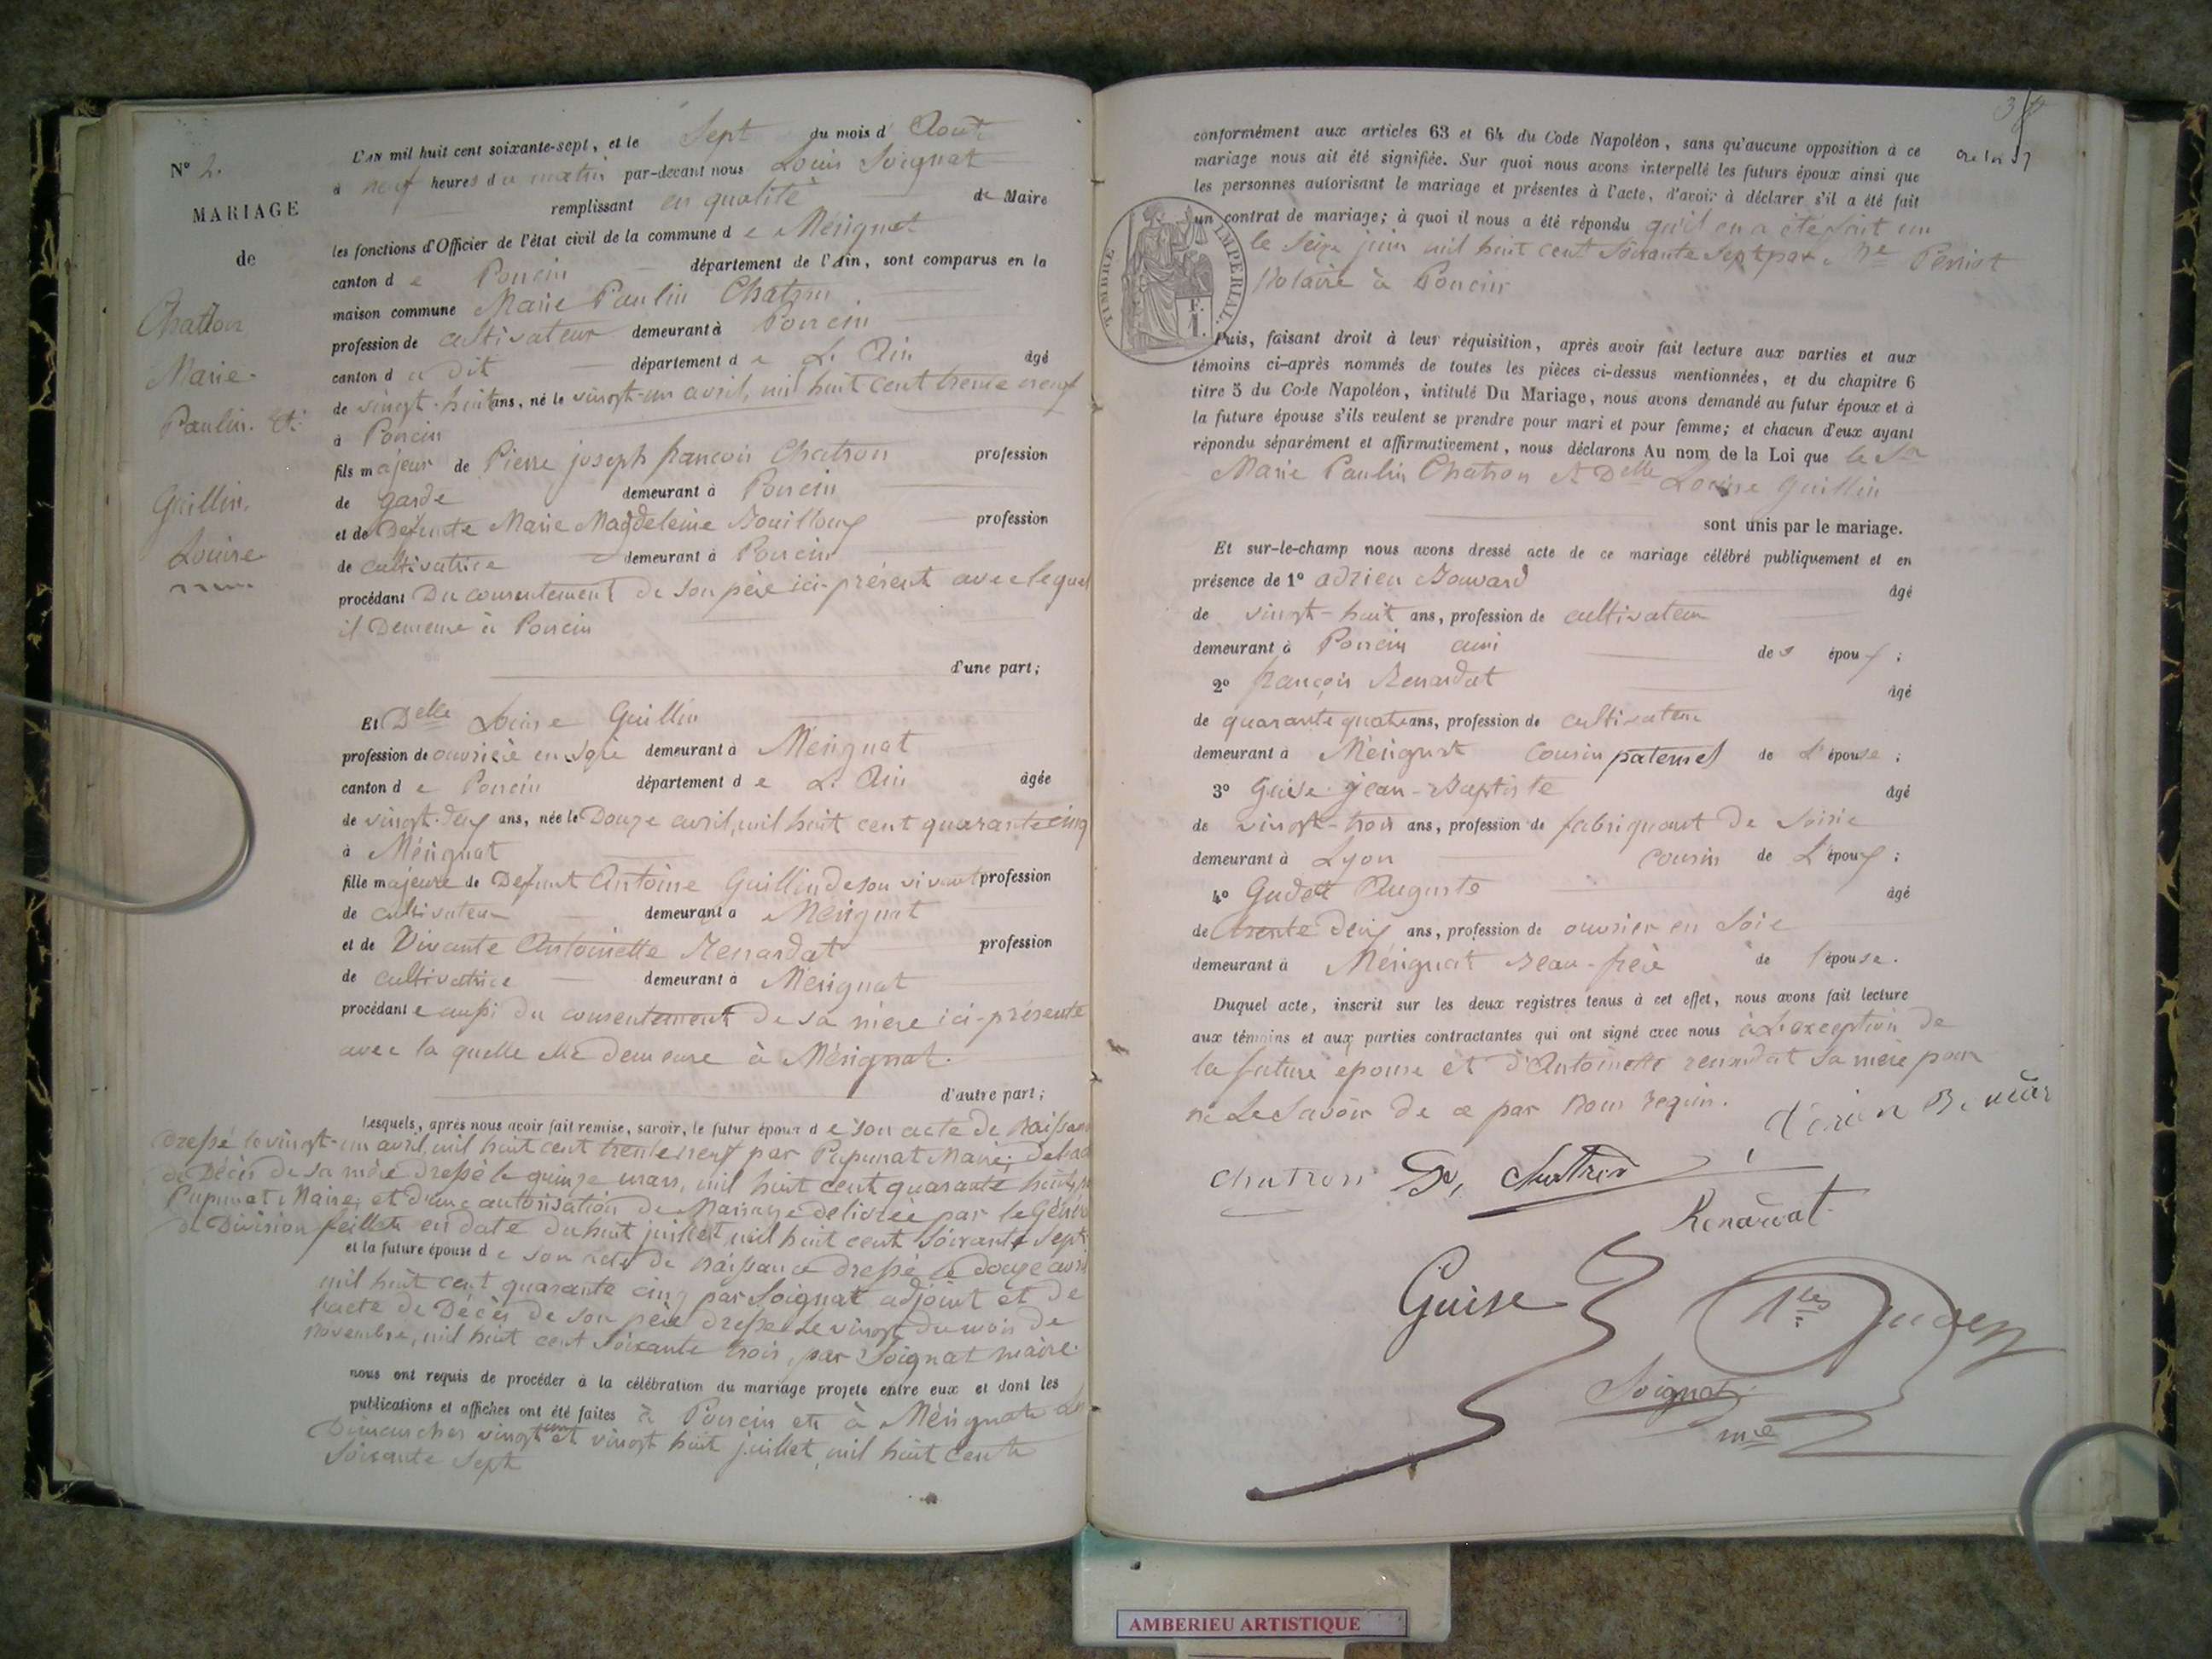 N° 2.
MARIAGE
de
Chatron
Marie-
Paulin. Et
Guillin,
Louise
L'AN mil huit cent soixante-sept, et le Sept du mois d' Août
à neuf heures du matin par-devant nous Louis Soignat
remplissant en qualité de Maire
les fonctions d'Officier de l'état civil de la commune de Mérignat
canton de Poncin département de l'Ain, sont comparus en la
maison commune Marie Paulin Chatron
profession de cultivateur demeurant à Poncin
canton du dit département de L'Ain âgé
de vingt-huit ans, né le vingt-un avril, mil huit cent trente neuf
à Poncin
fils majeur de Pierre joseph francois Chatron profession
de garde demeurant à Poncin
et de Defunte Marie Magdeleine Bouilloux profession
de cultivatrice demeurant à Poncin
procédant Du consentement de son père ici-présent avec lequel
il Demeure à Poncin
d'une part;
Et Delle Louise Guillin
profession de ouvrière en soie demeurant à Mérignat
canton de Poncin département de L'Ain âgée
de vingt-deux ans, née le Douze avril, mil huit cent quarante cinq
à Mérignat
fille majeure de Defunt Antoine Guillin de son vivant profession
de cultivateur demeurant à Mérignat
et de Vivante Antoinette Renardat profession
de cultivatrice demeurant à Mérignat
procédante aussi du consentement de sa mère ici-présente
avec la quelle elle demeure à Mérignat.
d'autre part;
Lesquels, après nous avoir fait remise, savoir, le futur époux de son acte de naissan
dressé le vingt-un avril, mil huit cent trente neuf par Papunat Maire;
de Décès de sa mère dressé le quinze mars, mil huit cent quarante huit
Papunat Maire; et d'une autorisation de Mariage delivrée par le Géné
de Division feillet en date du huit juillet, mil huit cent soixante sept
et la future épouse de son acte de naissance dressé le douze avri
mil huit cent quarante cinq par Soignat adjoint et de
l'acte de Décès de son père dressé le vingt du mois de
novembre, mil huit cent soixante trois, par Soignat maire.
nous ont requis de procéder à la célébration du mariage projeté entre eux et dont les
publications et affiches ont été faites à Poncin et à Mérignat
Dimanches vingt un et vingt huit juillet, mil huit cent
soixante sept
conformément aux articles 63 et 64 du Code Napoléon, sans qu'aucune opposition à ce
mariage nous ait été signifiée. Sur quoi nous avons interpellé les futurs époux ainsi que
les personnes autorisant le mariage et présentes à l'acte, d'avoir à déclarer s'il a été fait
un contrat de mariage; à quoi il nous a été répondu qu'il en a été fait un
le Seize juin mil huit cent soixante sept par Me
Notaire à Poncin
TIMBRE IMPERIAL.
Puis, faisant droit à leur réquisition, après avoir fait lecture aux parties et aux
témoins ci-après nommés de toutes les pièces ci-dessus mentionnées, et du chapitre 6
titre 5 du Code Napoléon, intitulé Du Mariage, nous avons demandé au futur époux et à
la future épouse s'ils veulent se prendre pour mari et pour femme; et chacun d'eux ayant
répondu séparément et affirmativement, nous déclarons Au nom de la Loi que le Sr
Marie Paulin Chatron et Delle Louise Guillin
sont unis par le mariage.
Et sur-le-champ nous avons dressé acte de ce mariage célébré publiquement et en
présence de 1° adrien Bouvard âgé
de vingt-huit ans, profession de cultivateur
demeurant à Poncin ami des époux;
2° françois Renardat âgé
de quarante quatre ans, profession de cultivateur
demeurant à Mérignat Cousin paternel de L'épouse;
3° Guise jean-Baptiste âgé
de vingt-trois ans, profession de fabriquant de Soirie
demeurant à Lyon cousin de L'époux;
4° Gudet Auguste âgé
de trente deux ans, profession de ouvrier en Soie
demeurant à Mérignat Beau-frère de l'épouse.
Duquel acte, inscrit sur les deux registres tenus à cet effet, nous avons fait lecture
aux témoins et aux parties contractantes qui ont signé avec nous à L'exception de
la future epouse et d'Antoinette renardat Sa mère pour
ne Le Savoir de ce par Nous requis.
Chatron Chatron
Renardat
Guise
Soignat
mre
AMBERIEU ARTISTIQUE